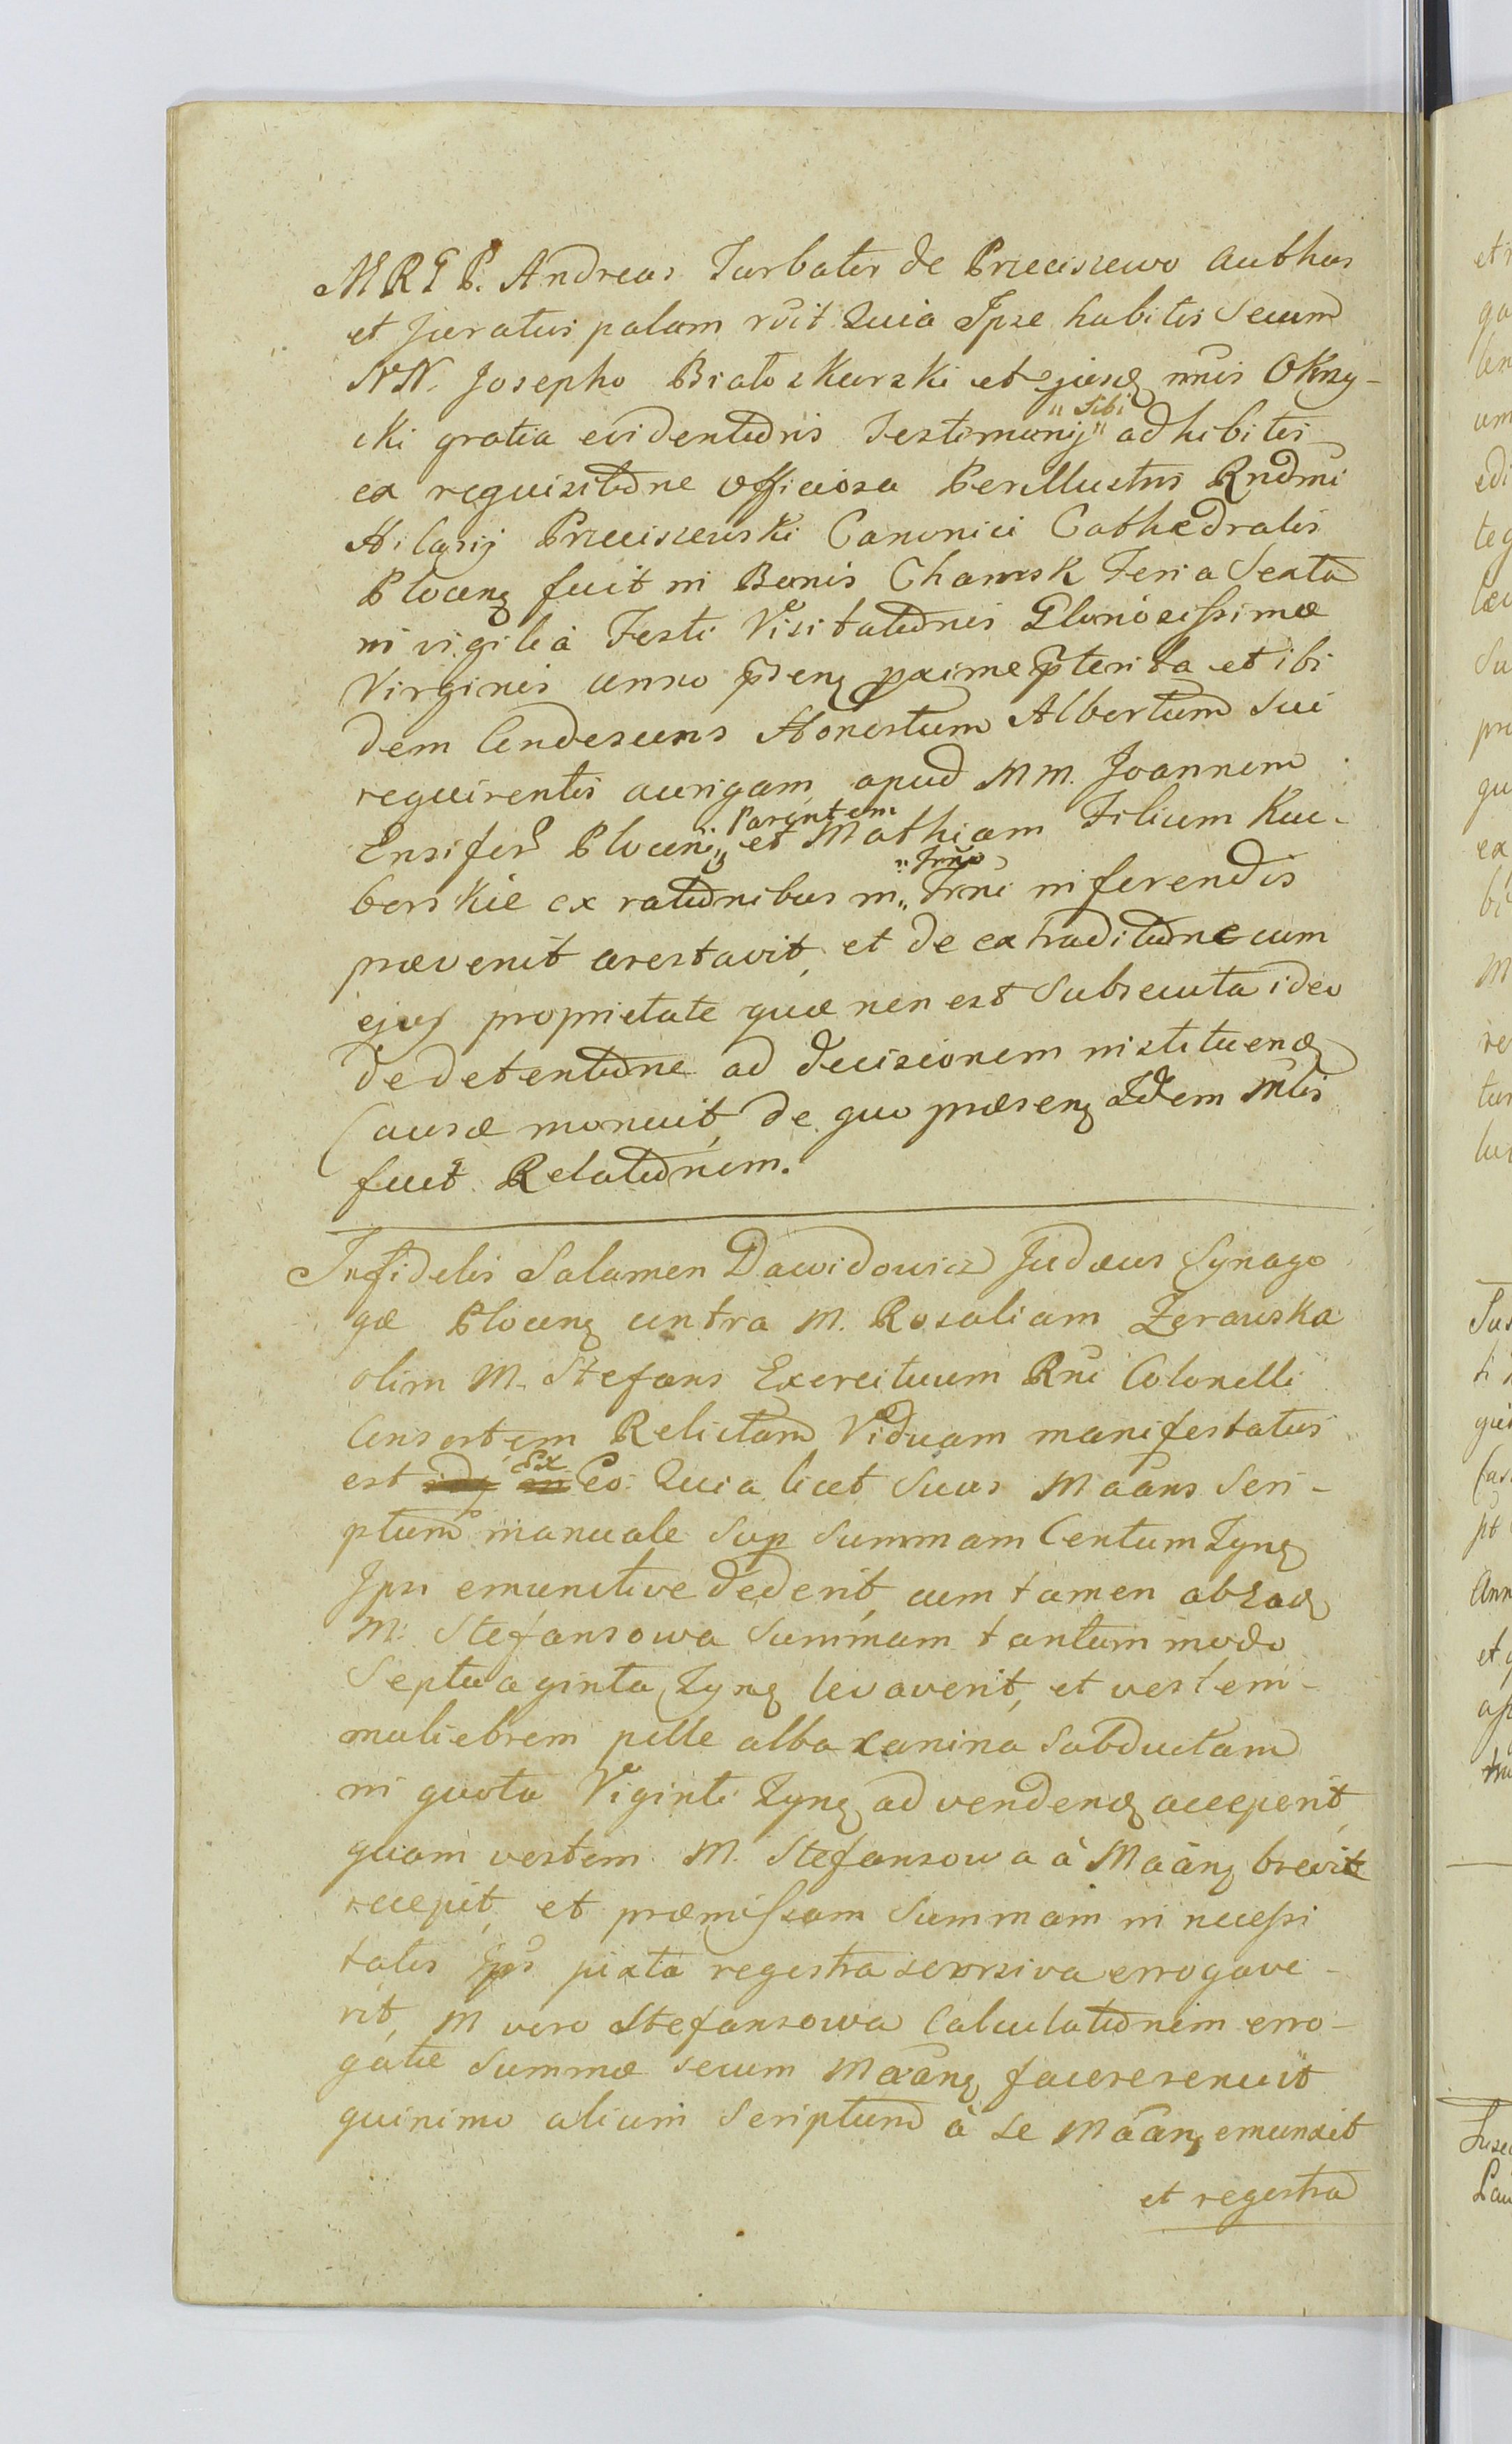 MRGP. Andreas Turbator de Przeciszewo Authus
et Juratus palam rcũit Quia Ipse habitis Secum
NN. Josepho Białoskurski et ejusdẽ nnis Okny-
cki gratia evidentũris Testimonij „Sibi„ adhibitis
ex requisitõne officiosa Perillustris Rndmi
Hilarij Przeciszewski Canonici Cathedralis
Plocenṣ fuit in Bonis Chamsk Feria Sexta
in vigilia Festi Visitatõnis Gloriosissimæ
Virginis anno pñenṣ pxime pterita et ibi
dem Condescens Honestum Albertum Sui
requirentis aurigam, apud MM. Joannem
Ensiferũ Plocenṣ „Parentem„ et Mathiam Filium Kuc-
borskie ex ratõnibus in „Trino„ Trmi inferendis
prævenit arestavit, et de extraditõne cum
ejus proprietate quæ non est Subsecuta ideo
de detentõne ad decisionem instituendæ
Causæ monuit, de quo præsenṣ Idem Mtis
fecit Relatõnem.
Infidelis Salamon Dawidowicz Judæus Synago
gæ Plocenṣ contra M. Rosaliam Zerawska
olim M. Stefans Exercituum Rni Colonelli
Consortem Relictam Viduam manifestatus
est Ex Eo Quia licet Suus Maãns Scri-
ptum manuale Sup Summam Centum Tynṣ
Ipsi emunitive dederit, cum tamen absadẽ
M. Stefansowa Summam tantum modo
Septuaginta Tynṣ levaverit, et vestem
muliebrem pelle alba canina Subductam
in quota Viginti Tynṣ ad vendendẽ acceperit,
quam vestem M. Stefansowa à Maãnṣ brevit
recepit, et præmissam Summam in necessi
tates Ipsĩ juxta regestra seorsiva erogave-
rit, M vero Stefansowa Calculatõnem erro-
gatæ Summæ secum Maãnṣ facere renuit
quinimo alium Scriptum à se Maãnṣ emunxit
et regestra